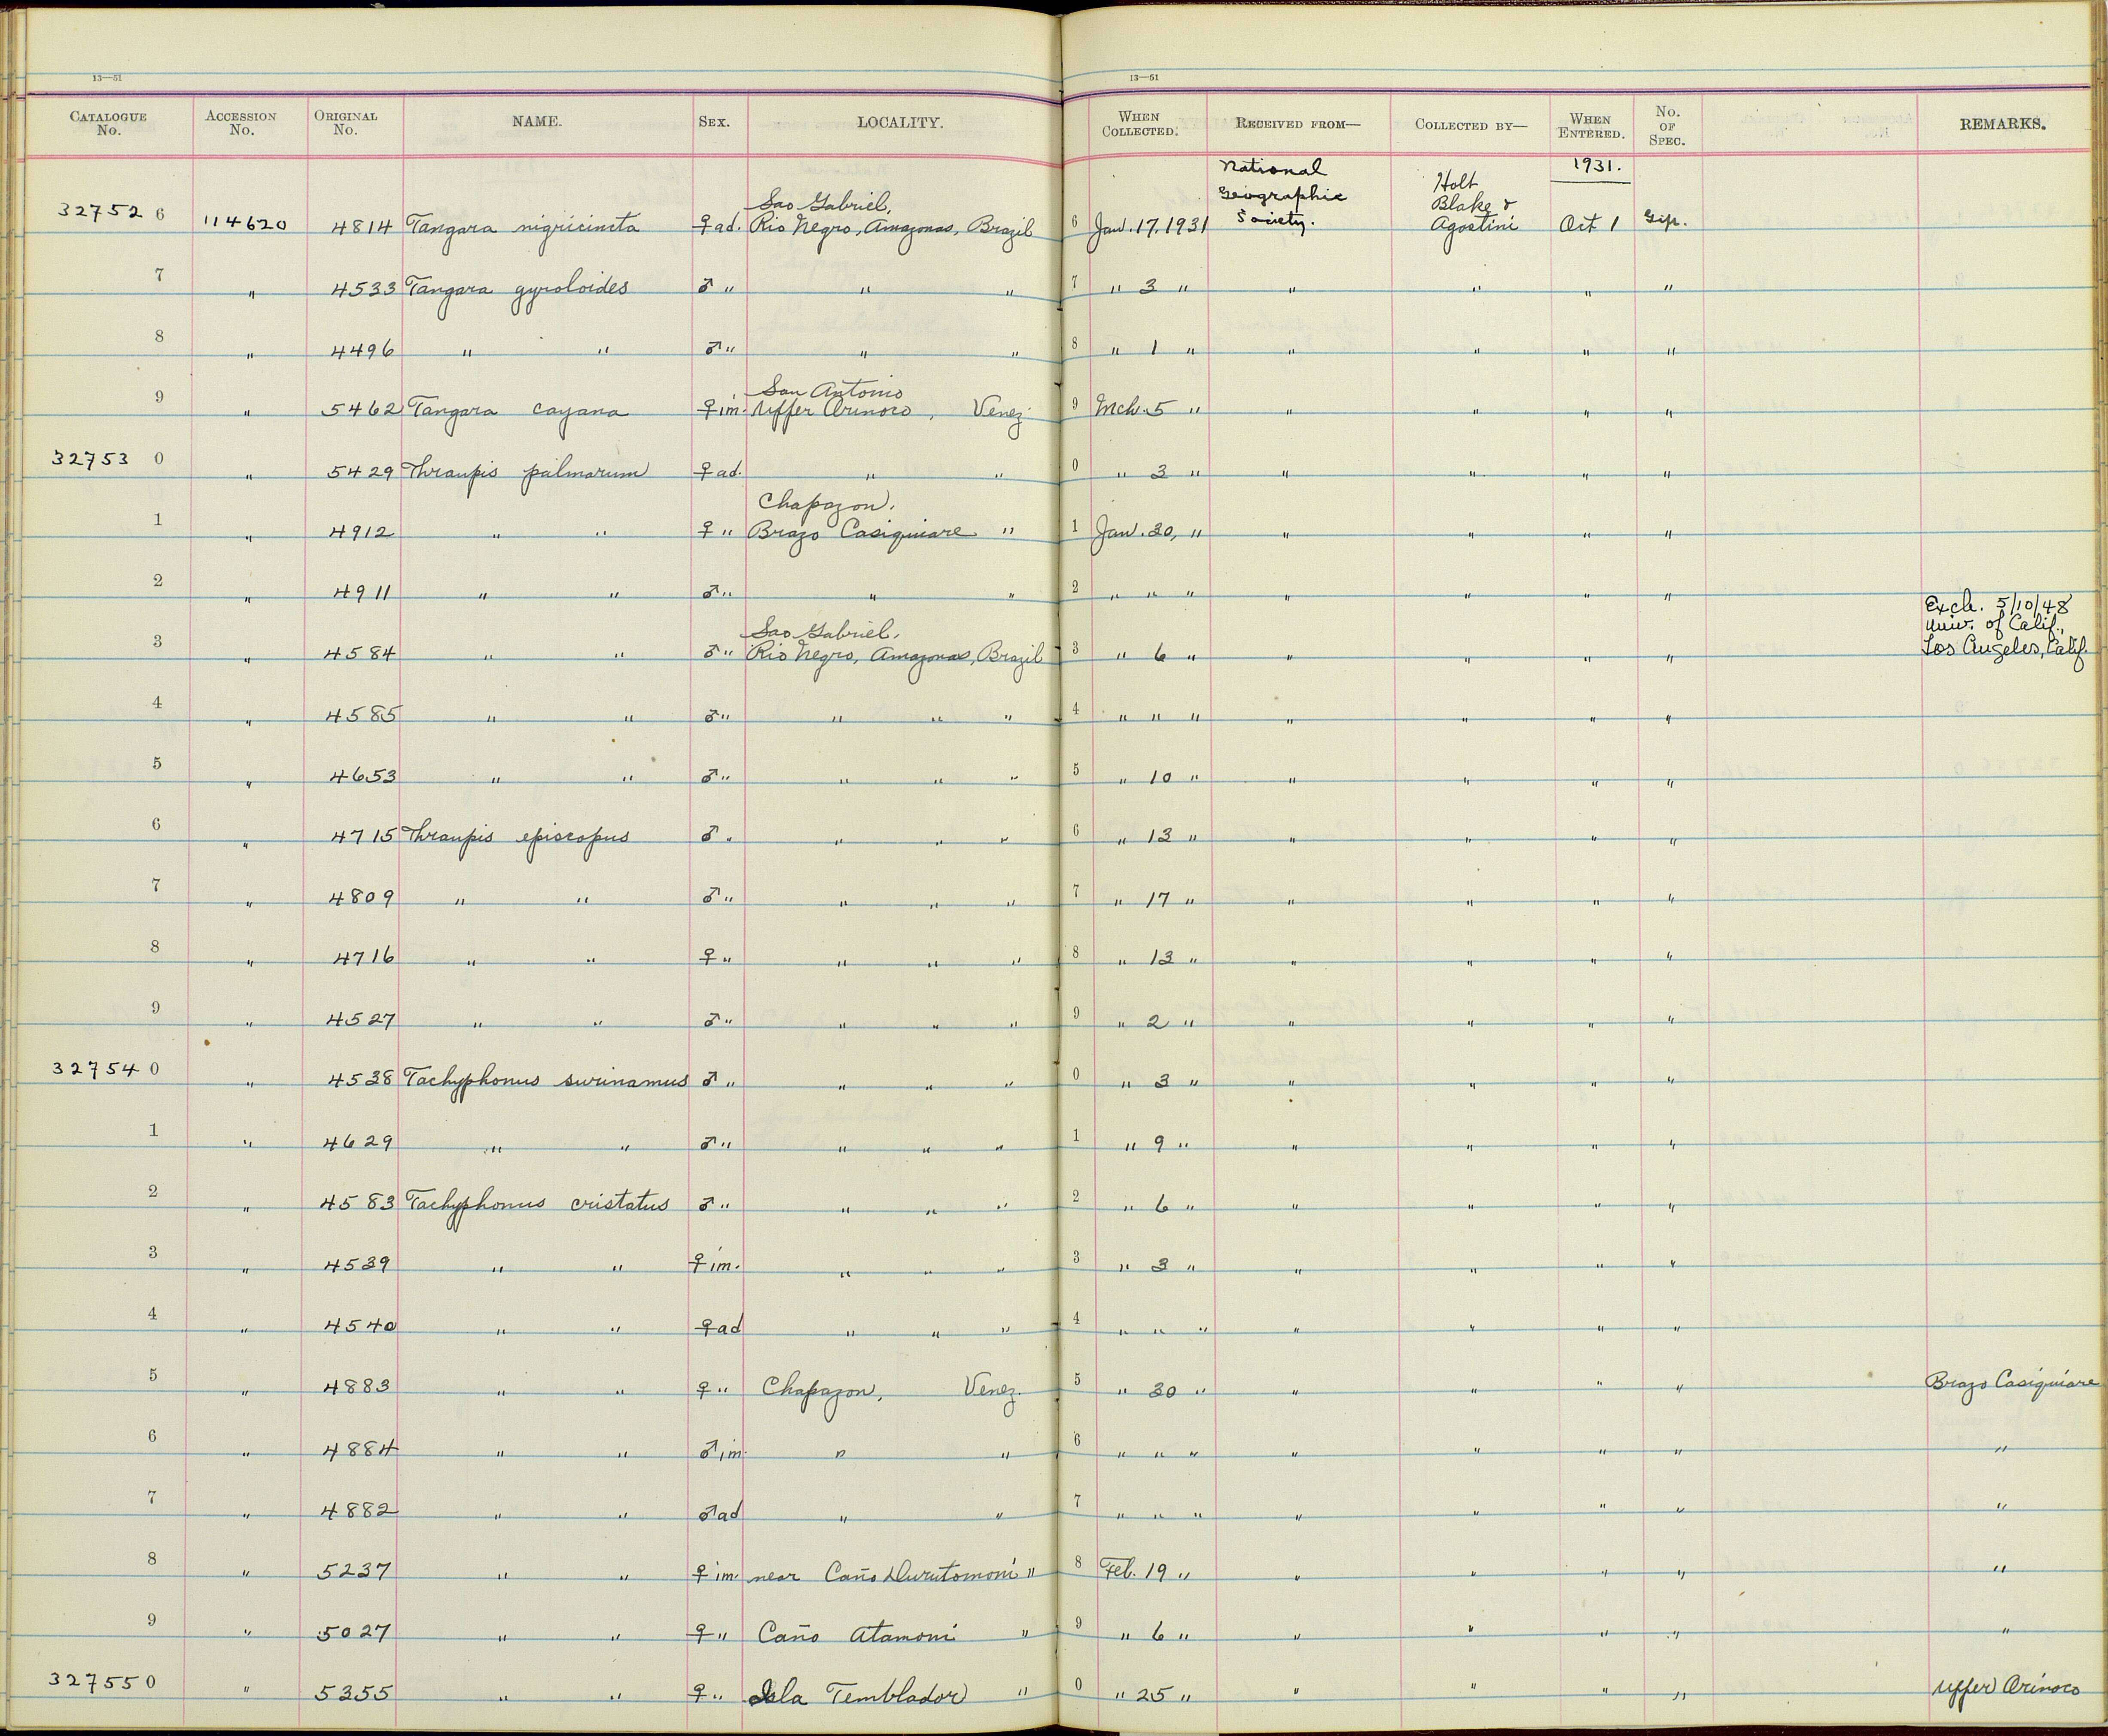 13—51 13—51
CATALOGUE No. ACCESSION No. ORIGINAL No. NAME. SEX. LOCALITY. WHEN COLLECTED. RECEIVED FROM— COLLECTED BY— WHEN ENTERED. No. OF SPEC. REMARKS.
National Geographic Society. Holt Blake & Agostini 1931.
Sao Gabriel,
32752 6 114620 4814 Tangara nigricincta ♀ ad. Rio Negro, Amazonas, Brazil 6 Jan. 17, 1931 Oct 1
7 " 4533 Tangara gyroloides ♂ " " " 7 " 3 " " " " "
8 " 4496 " " ♂ " " " 8 " 1 " " " " "
San Antonio
9 " 5462 Tangara cayana ♀ im. Upper Orinoco, Venez. 9 Mch. 5 " " " " "
32753 0 " 5429 Thraupis palmarum ♀ ad. " " 0 " 3 " " " " "
Chapazon,
1 " 4912 " " ♀ " Brazo Casiquiare " 1 Jan. 30, " " " " "
2 " 4911 " " ♂ " " " 2 " " " " " " "
Sao Gabriel, Exch. 5/10/48
Univ. of Calif.,
3 " 4584 " " ♂ " Rio Negro, Amazonas, Brazil 3 " 6 " " " " " Los Angeles, Calif.
4 " 4585 " " ♂ " " " " 4 " " " " " " "
5 " 4653 " " ♂ " " " " 5 " 10 " " " " "
6 " 4715 Thraupis episcopus ♂ " " " " 6 " 13 " " " " "
7 " 4809 " " ♂ " " " " 7 " 17 " " " " "
8 " 4716 " " ♀ " " " " 8 " 13 " " " " "
9 " 4527 " " ♂ " " " " 9 " 2 " " " " "
32754 0 " 4538 Tachyphonus surinamus ♂ " " " " 0 " 3 " " " " "
1 " 4629 " " ♂ " " " " 1 " 9 " " " " "
2 " 4583 Tachyphonus cristatus ♂ " " " " 2 " 6 " " " " "
3 " 4539 " " ♀ im. " " " 3 " 3 " " " " "
4 " 4540 " " ♀ ad " " " 4 " " " " " " "
5 " 4883 " " ♀ " Chapazon, Venez. 5 " 30 " " " " " Brazo Casiquiare
6 " 4884 " " ♂ im. " " 6 " " " " " " " "
7 " 4882 " " ♂ ad " " 7 " " " " " " " "
8 " 5237 " " ♀ im. near Caño Durutomoni " 8 Feb. 19 " " " " " "
9 " 5027 " " ♀ " Caño Atamoni " 9 " 6 " " " " " "
32755 0 " 5355 " " ♀ " Isla Temblador " 0 " 25 " " " " " Upper Orinoco